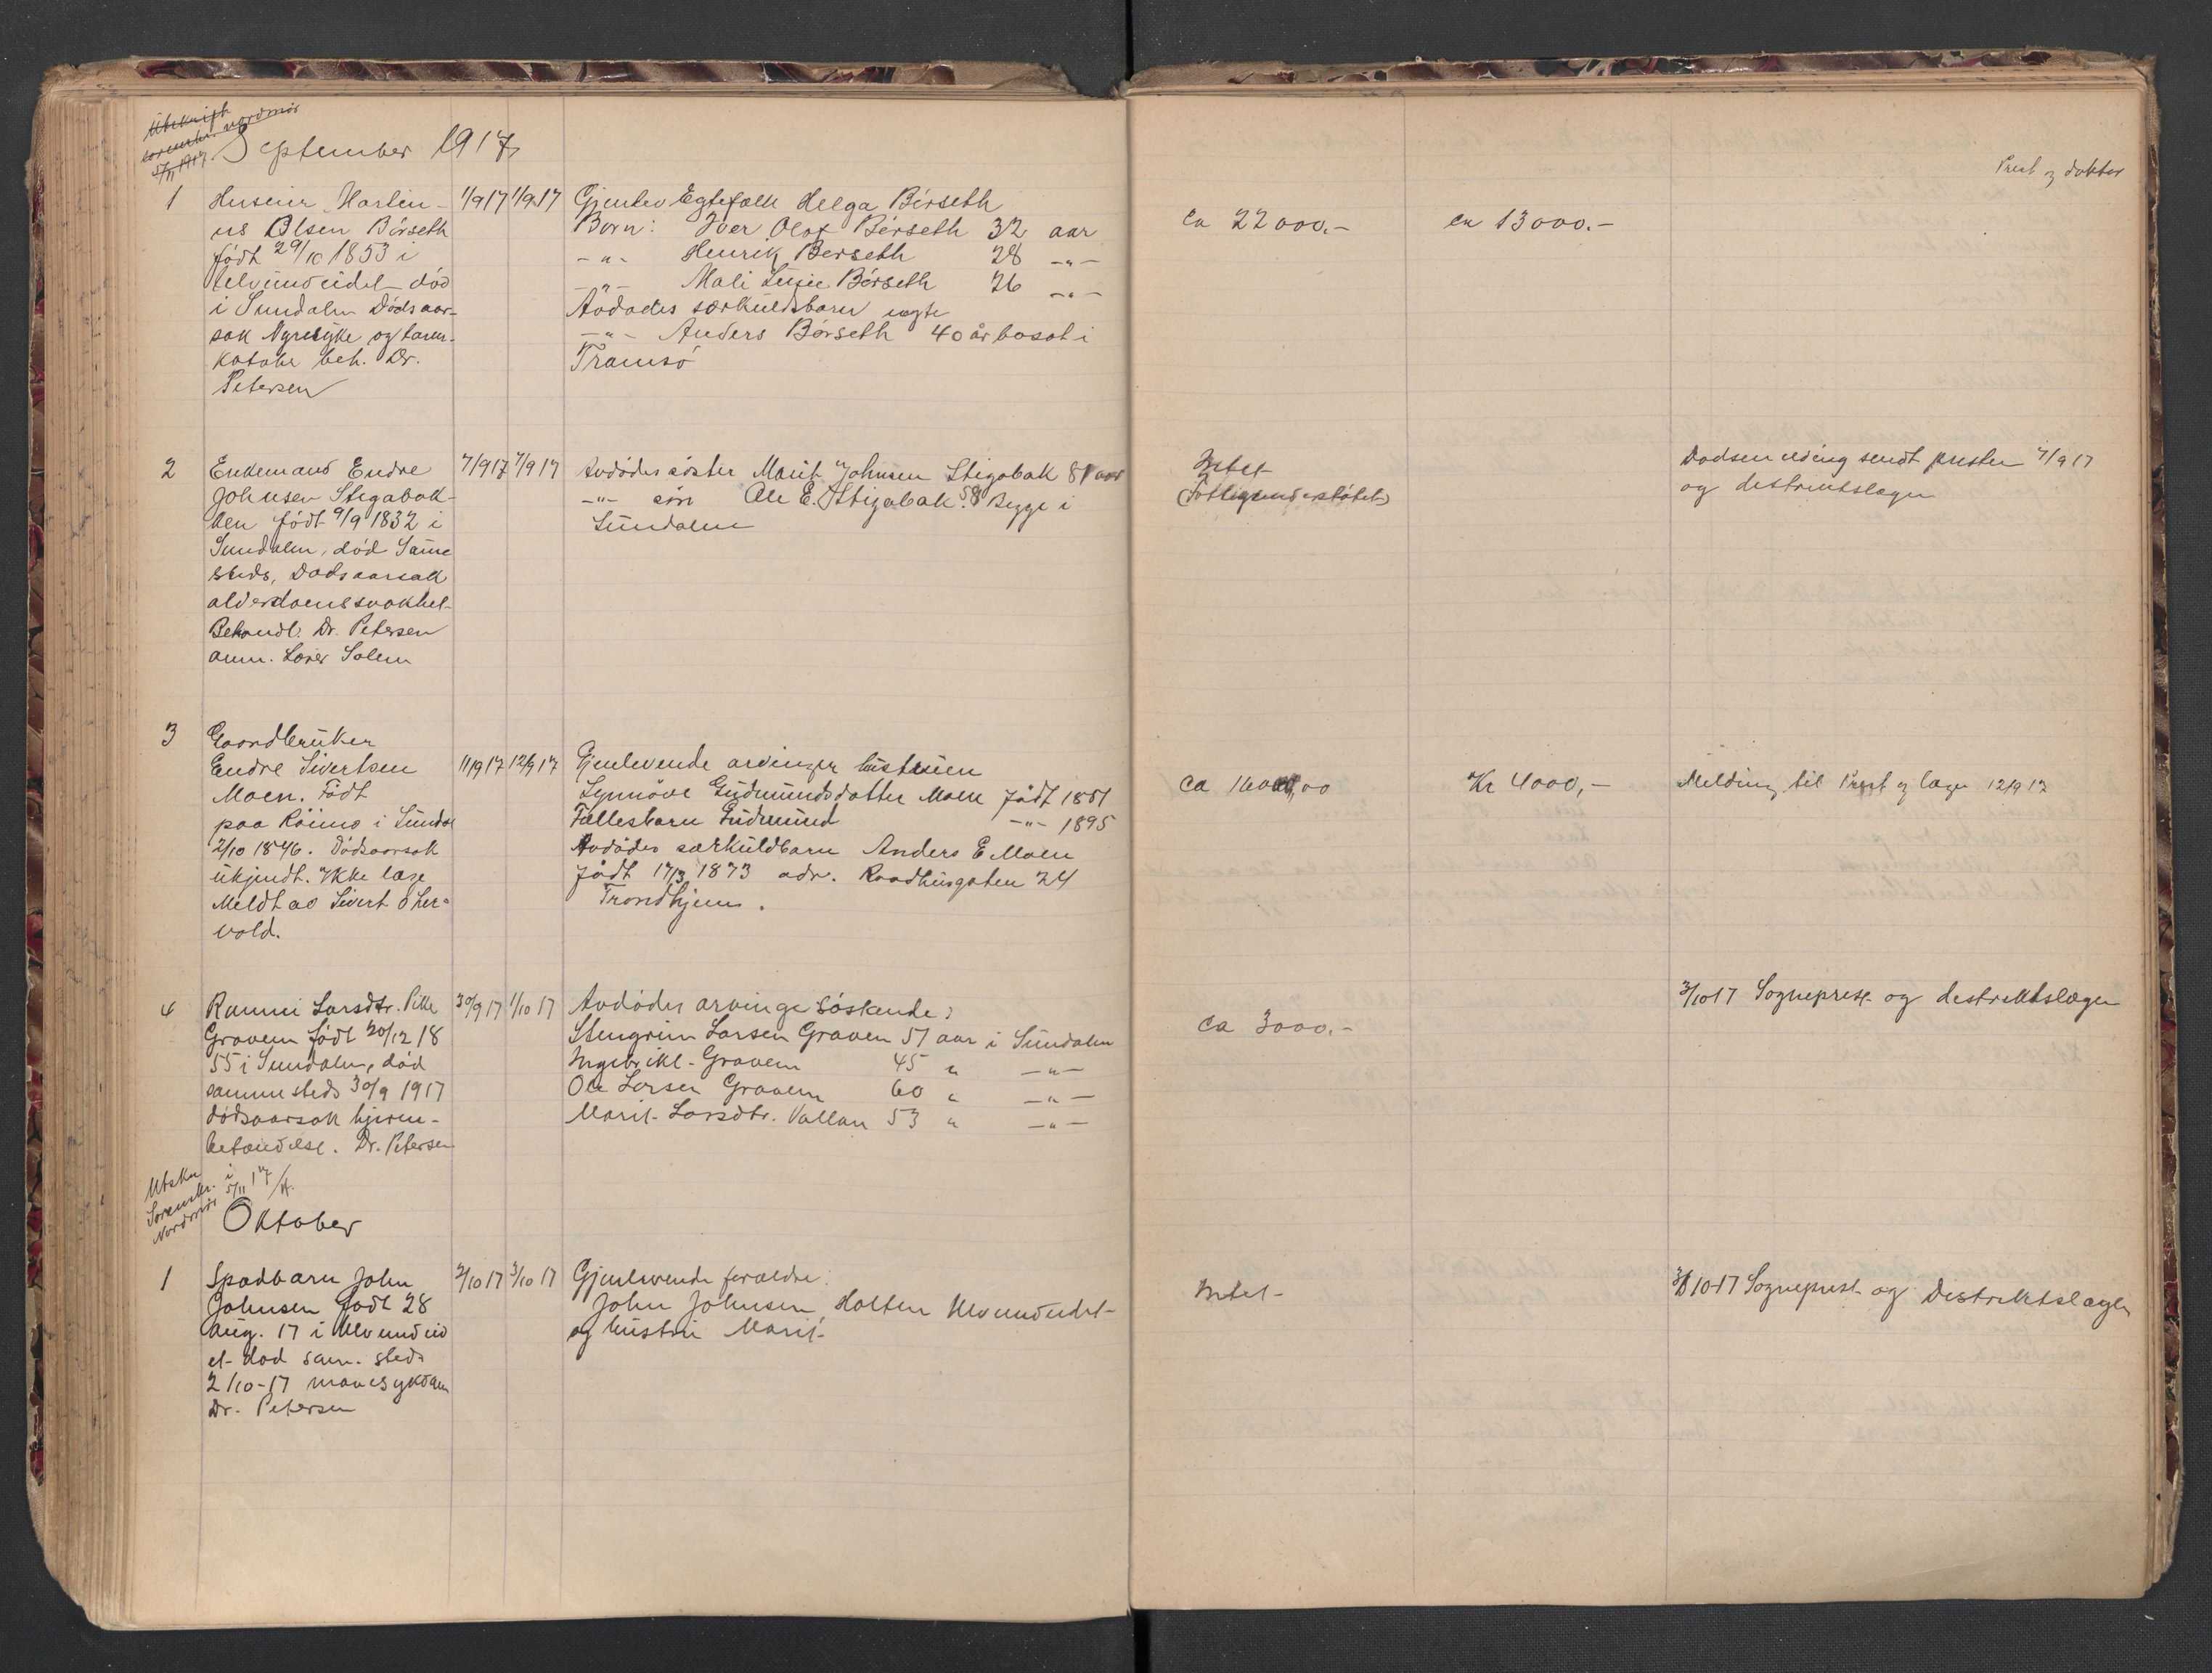 Utskrift
sorenskr. Nordmör
5/11 1917.
September 1917
Prest og doktor
1
Huseier Martin-
us Olsen Börseth
født 29/10 1853 i
Ulvundeidet død
i Sundalen Dödsaar-
sak Nyresyke og tarm-
katahr beh. Dr.
Petersen
1/9 17
1/9 17
Gjenlev Egtefælle Helga Börseth
Børn: Iver Olaf Börseth 32 aar
-"- Henrik Børseth 28 -"-
-"- Mali Börseth 26 -"-
Avdødes særkuldsbarn uegte
-"- Anders Börseth 40 år bosat i
Tromsö
Ca 22000.-
ca 13000.-
2
Enkemand Endre
Johnsen Stigabak-
ken født 9/9 1832 i
Sundalen, död Samme
steds, Dødsaarsak
alderdomssvakhet
Behandl. Dr. Petersen
anm. Lærer Solem
7/9 17
7/9 17
Avdødes söster Marit Johnsen Stigabak 81 aar
-"- sön Ole E. Stigabak 58 Begge i
Sundalen
Intet
(Fattigunderstøtet)
Dødsmelding sendt presten 7/9 17
og distriktslægen
3
Gaardbruker
Endre Sivertsen
Moen. Født
paa Röimo i Sundal
2/10 1846. Dødsaarsak
ukjendt. Ikke læge
Meldt av Sivert
vold.
11/9 17
12/9 17
Gjenlevende arvinger hustruen
Synnöve Gudmundsdatter Moen født 1851
Fællesbarn Gudmund -"- 1895
Avdødes særkuldbarn Anders E Moen
født 17/3 1873 adr. Raadhusgaten 24
Trondhjem.
Ca 16000,00
Kr 4000,-
Melding til Prest og læge 12/9 17
4
Ranni Larsdtr. Pike
Gravem født 20/12 18
55 i Sundalen, død
sammesteds 30/9 1917
dødsaarsak hjerne-
betændelse. Dr. Petersen
30/9 17
1/10 17
Avdødes arvinge Söskende:
Stengrim Larsen Gravem 57 aar i Sundalen
Ingebrikt Gravem 45 " -"-
Ole Larsen Gravem 60 " -"-
Marit Larsdtr. Vollan 53 " -"-
Ca 3000.-
3/10 17 Sogneprest og distriktslægen
Utskr. i
Sorenskr. 5/11 17
Nordmör
Oktober
1
Spædbarn John
Johnsen født 28
aug. 17 i Ulvundeid
et død sam. steds
2/10-17 mavesykdom
Dr. Petersen
2/10 17
3/10 17
Gjenlevende forældre:
John Johnsen Holten Ulvundeidet
og hustru Marit
Intet
3/10-17 Sogneprest og Distriktslægen